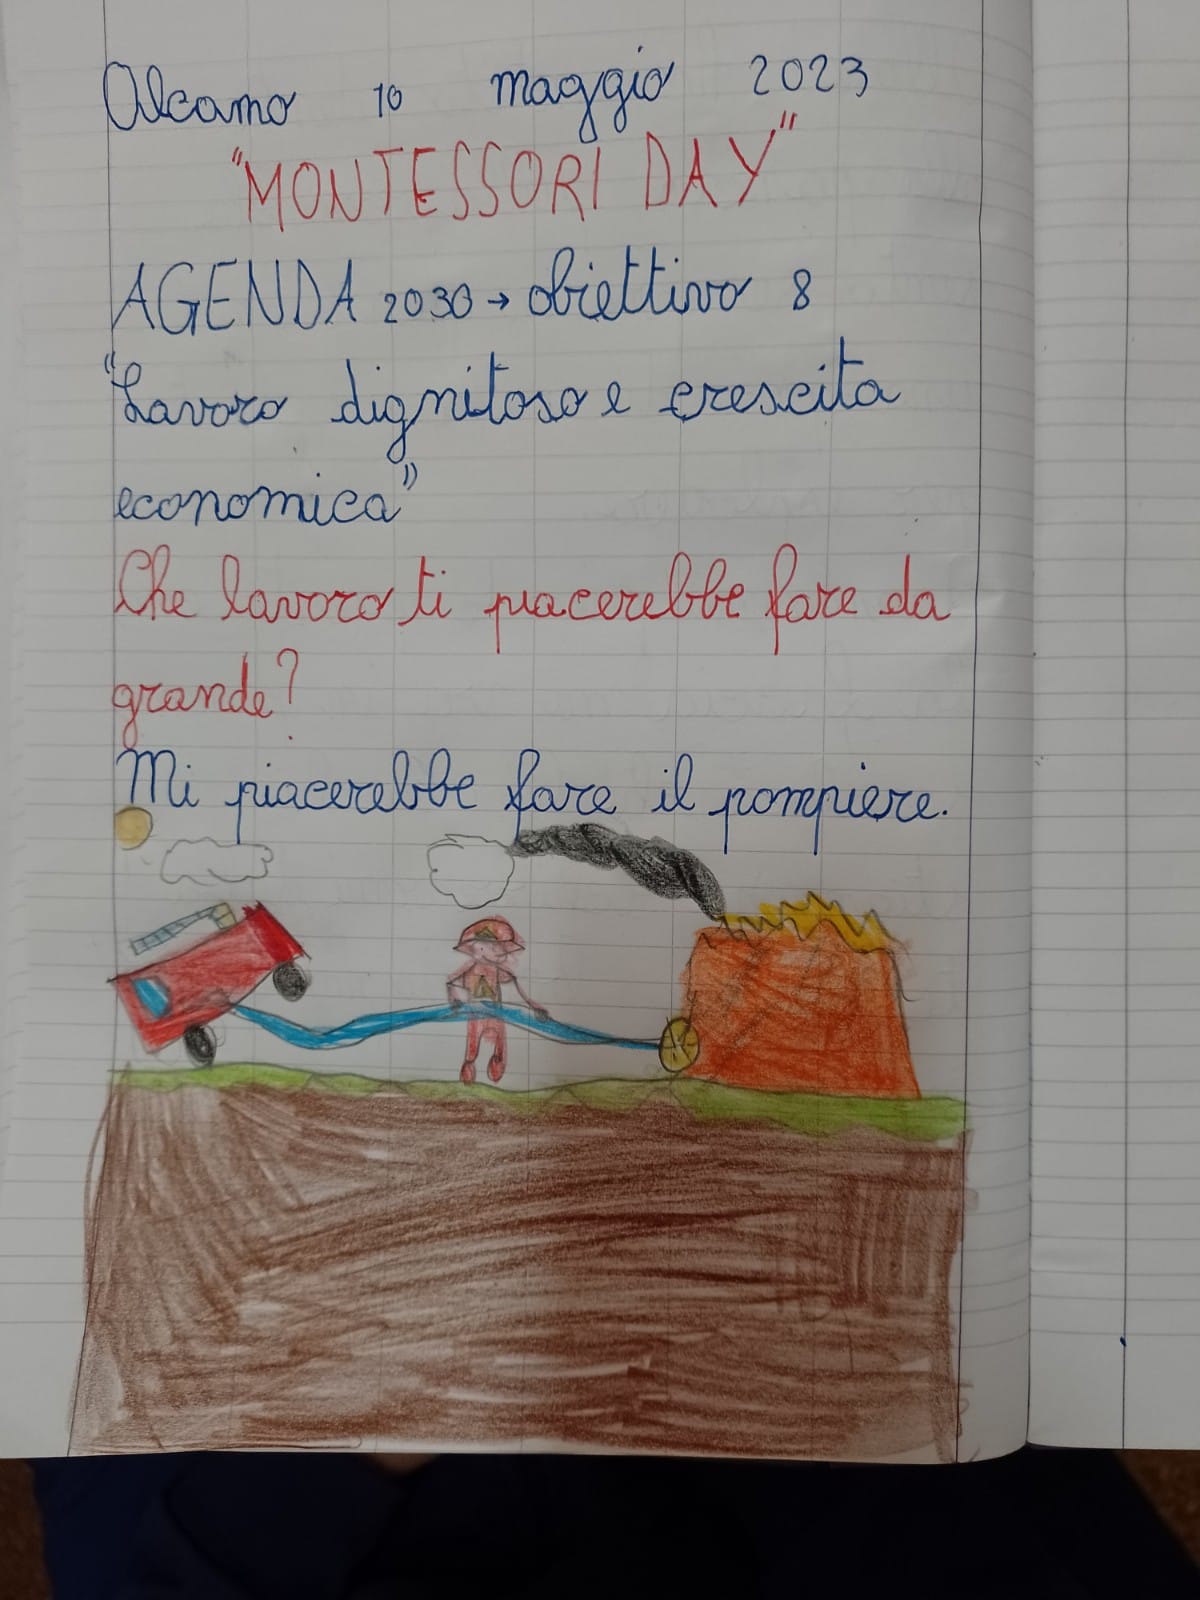 Alcamo 10 maggio 2023
"MONTESSORI DAY"
AGENDA 2030 → obiettivo 8
"Lavoro dignitoso e crescita
economica"
Che lavoro ti piacerebbe fare da
grande?
Mi piacerebbe fare il pompiere.